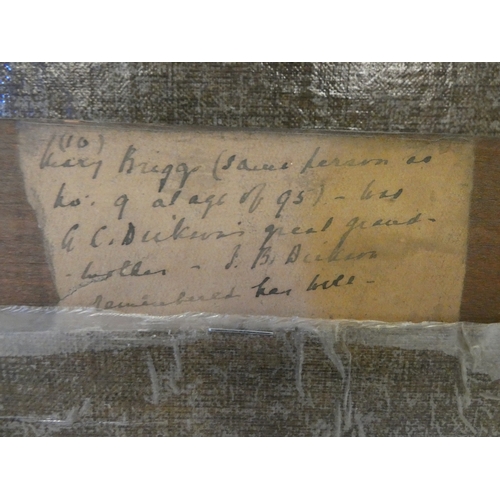 (10)
Mary Briggs (same person as
No. 9 at age of 95) - was
A C. Dickson's great grand-
- mother - J. B. Dickson
remembered her well -